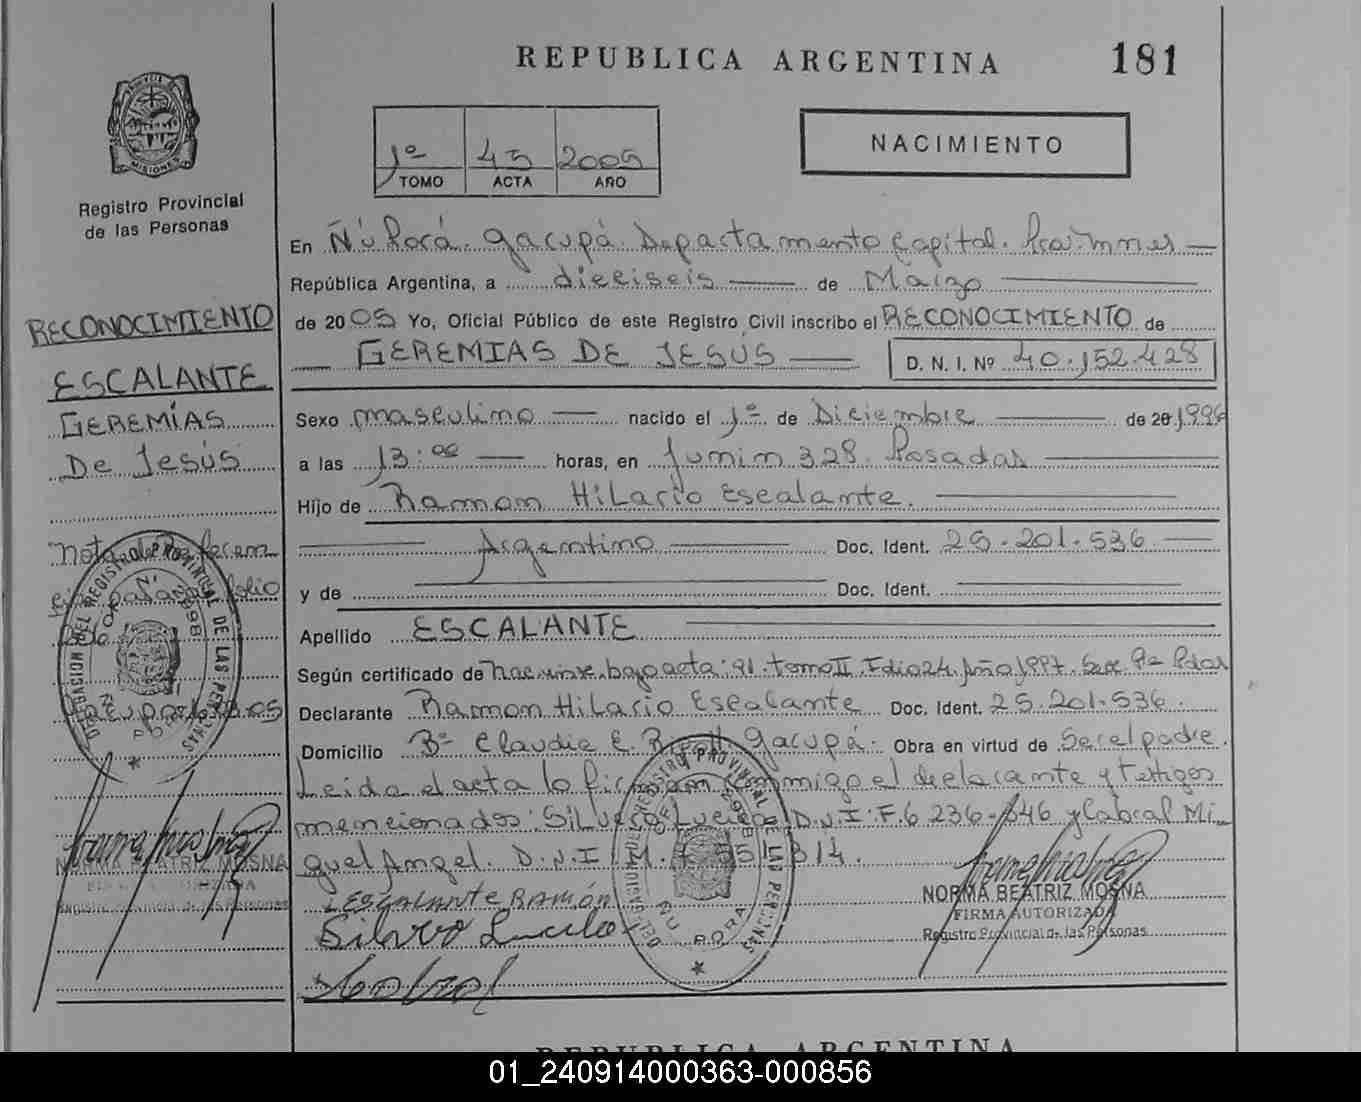 REPUBLICA ARGENTINA 181
MISIONES
Registro Provincial
de las Personas
1º 45 2005
TOMO ACTA AÑO
NACIMIENTO
RECONOCIMIENTO
ESCALANTE
GEREMÍAS
De Jesús
En Ñu Porá. Garupá. Departamento Capital. Pcia. Mnes
República Argentina, a dieciseis de Marzo
de 2005 Yo, Oficial Público de este Registro Civil inscribo el RECONOCIMIENTO de
GEREMIAS DE JESÚS D. N. I. Nº 40.152.428
Sexo masculino nacido el 1º de Diciembre de 20 1996
a las 13:00 horas, en Junin 328. Posadas
Hijo de Ramon Hilario Escalante.
Argentino Doc. Ident. 25.201.536
y de Doc. Ident.
Apellido ESCALANTE
Según certificado de bajo acta: 91. tomo II. Folio 24. Año 1997.
Declarante Ramon Hilario Escalante Doc. Ident. 25.201.536.
Domicilio Bº Claudia E. Garupá. Obra en virtud de Ser el padre.
Leida el acta la firman conmigo el declarante y testigos
mencionados: Silvero Lucila D.N.I. F. 6.236.646 y Cabral Mi
guel Angel. D.N.I. M.
ESCALANTE RAMÓN
Silvero Lucila
Cabral
NORMA BEATRIZ MOSNA
FIRMA AUTORIZADA
Registro Provincial de las Personas
NORMA BEATRIZ MOSNA
FIRMA AUTORIZADA
Registro Provincial de las Personas
DELEGACION DEL REGISTRO PROVINCIAL DE LAS PERSONAS
ÑU PORA
DELEGACION DEL REGISTRO PROVINCIAL DE LAS PERSONAS
ÑU PORA
REPUBLICA ARGENTINA
01_240914000363-000856